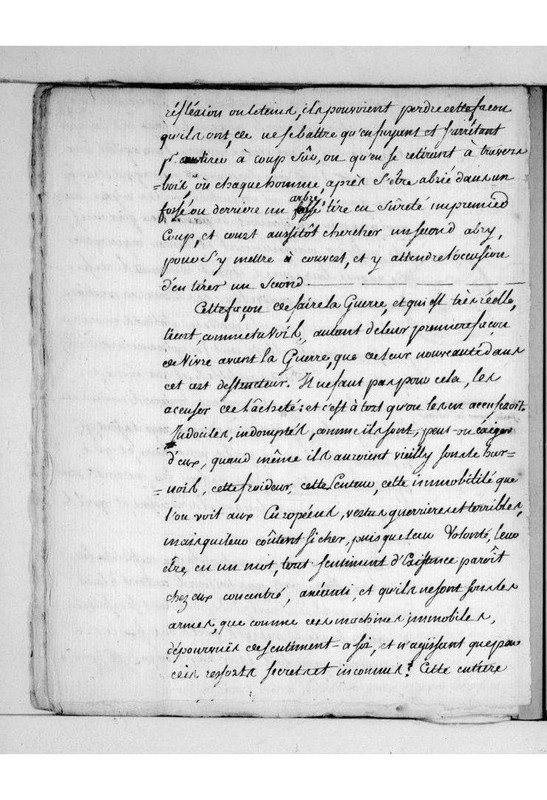 réfléxion ou le tems, ils pouvoient perdre cette façon
qu'ils ont, de ne se battre qu'en fuyant et s'arrêtant
pr. tirer à coup sûr, ou qu'en se retirant à travers
bois, où chaque homme, après s'être abrié dans un
fossé ou derriere un arbre tire en sûreté un premier
Coup, et court aussitôt chercher un second abry,
pour s'y mettre à couvert, et y attendre l'occasion
d'en tirer un second.
Cette façon de faire la Guerre, et qui est très réelle,
tient, comme tu Vois, autant de leur premiere façon
de Vivre avant la Guerre, que de leur nouveauté dans
cet art destructeur. Il ne faut pas pour cela, les
accuser de lâcheté: et c'est à tort qu'on les en accuseroit.
Indociles, indomptés, comme ils sont, peut-on éxiger
d'eux, quand même ils auroient vieilly sous le har-
-nois, cette froideur, cette lenteur, cette immobilité que
l'on voit aux Européens, vertus guerrieres et terribles,
mais qui leur coûtent si cher, puisque leur Volonté, leur
être, en un mot, tout sentiment d'Existance paroît
chez eux concentré, anéanti, et qu'ils ne sont sous les
armes, que comme des machines immobiles,
dépourvües de sentiment-à soi, et n'agissant que par
des ressorts secrets et inconnus? Cette entiere